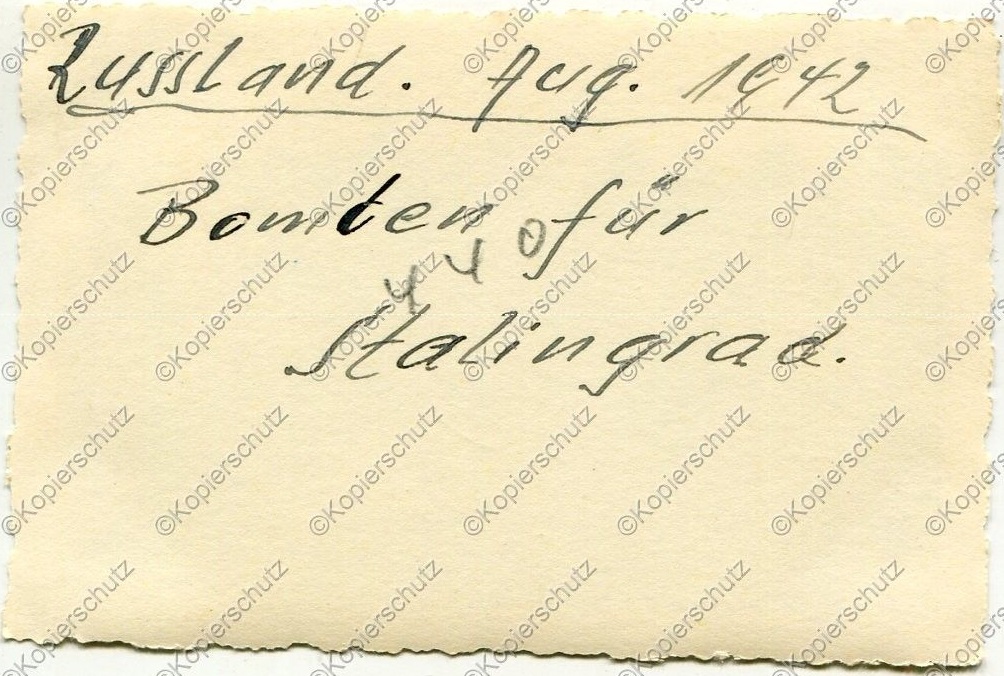 Russland. Aug. 1942
Bomben für
440
Stalingrad.
©Kopierschutz